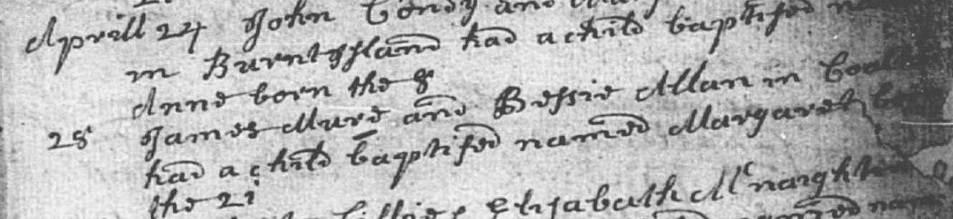 Aprill 24 John Condy and
in Burntysland had a child baptised
Anne born the 8
28 James Mure and Bessie Allan in
had a child baptised named Margaret
the 21
Elizabath McNaughton
named